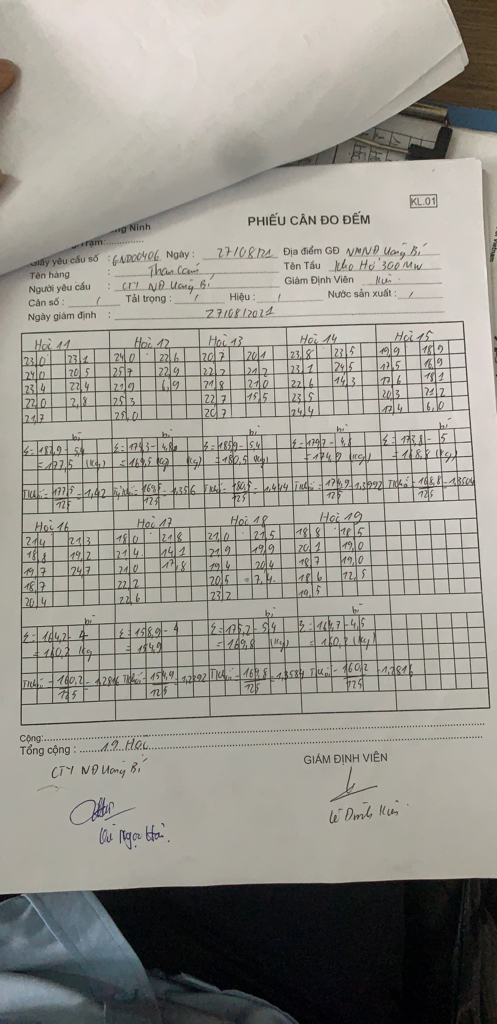 KL.01
ng Ninh
Trạm:
PHIẾU CÂN ĐO ĐẾM
Giấy yêu cầu số : GND00406 Ngày : 27/08/21 Địa điểm GĐ NMNĐ Uông Bí
Tên hàng : Than Cám Tên Tầu Kho Hở 300MW
Người yêu cầu : CTY NĐ Uông Bí Giám Định Viên : Kiên
Cân số : / Tải trọng : / Hiệu : / Nước sản xuất : /
Ngày giám định : 27/08/2021
Hoi 11 Hoi 12 Hoi 13 Hoi 14 Hoi 15
23,0 23,1 24,0 22,6 20,7 20,1 23,8 23,5 19,9 18,9
24,0 20,5 25,7 22,9 22,2 21,2 23,1 24,5 17,5 16,9
23,4 22,4 21,9 6,9 21,8 21,0 22,6 14,3 17,6 18,1
22,0 2,8 25,3 22,7 15,5 23,5 20,3 21,2
21,7 25,0 20,7 24,4 17,4 6,0
bì bì bì
Σ = 182,9 - 5,4 Σ = 174,3 - 4,8 Σ = 185,9 - 5,4 Σ = 179,7 - 4,8 Σ = 173,8 - 5
= 177,5 (kg) = 169,5 (kg) = 180,5 (kg) = 174,9 (kg) = 168,8 (kg)
= 177,5/125 = 1,42 = 169,5/125 = 1,356 = 180,5/125 = 1,444 = 174,9/125 = 1,3992 = 168,8/125 = 1,3504
Hoi 16 Hoi 17 Hoi 18 Hoi 19
21,4 21,3 18,0 21,8 21,0 21,5 18,8 18,5
18,8 19,2 21,4 14,1 21,9 19,9 20,1 19,0
19,7 24,7 21,0 17,8 19,4 20,4 18,7 19,0
18,7 22,2 20,5 7,4 18,6 12,5
20,4 22,6 23,2 19,5
bì bì bì
Σ = 164,2 - 4 Σ = 158,9 - 4 Σ = 175,2 - 5,4 Σ = 164,7 - 4,5
= 160,2 (kg = 154,9 = 169,8 (kg) = 160,2 (kg)
= 160,2/125 = 1,2816 = 154,9/125 = 1,2392 = 169,8/125 = 1,3584 = 160,2/125 = 1,2816
Cộng:
Tổng cộng : 19 Hoi
CTY NĐ Uông Bí
GIÁM ĐỊNH VIÊN
Lê Đình Kiên